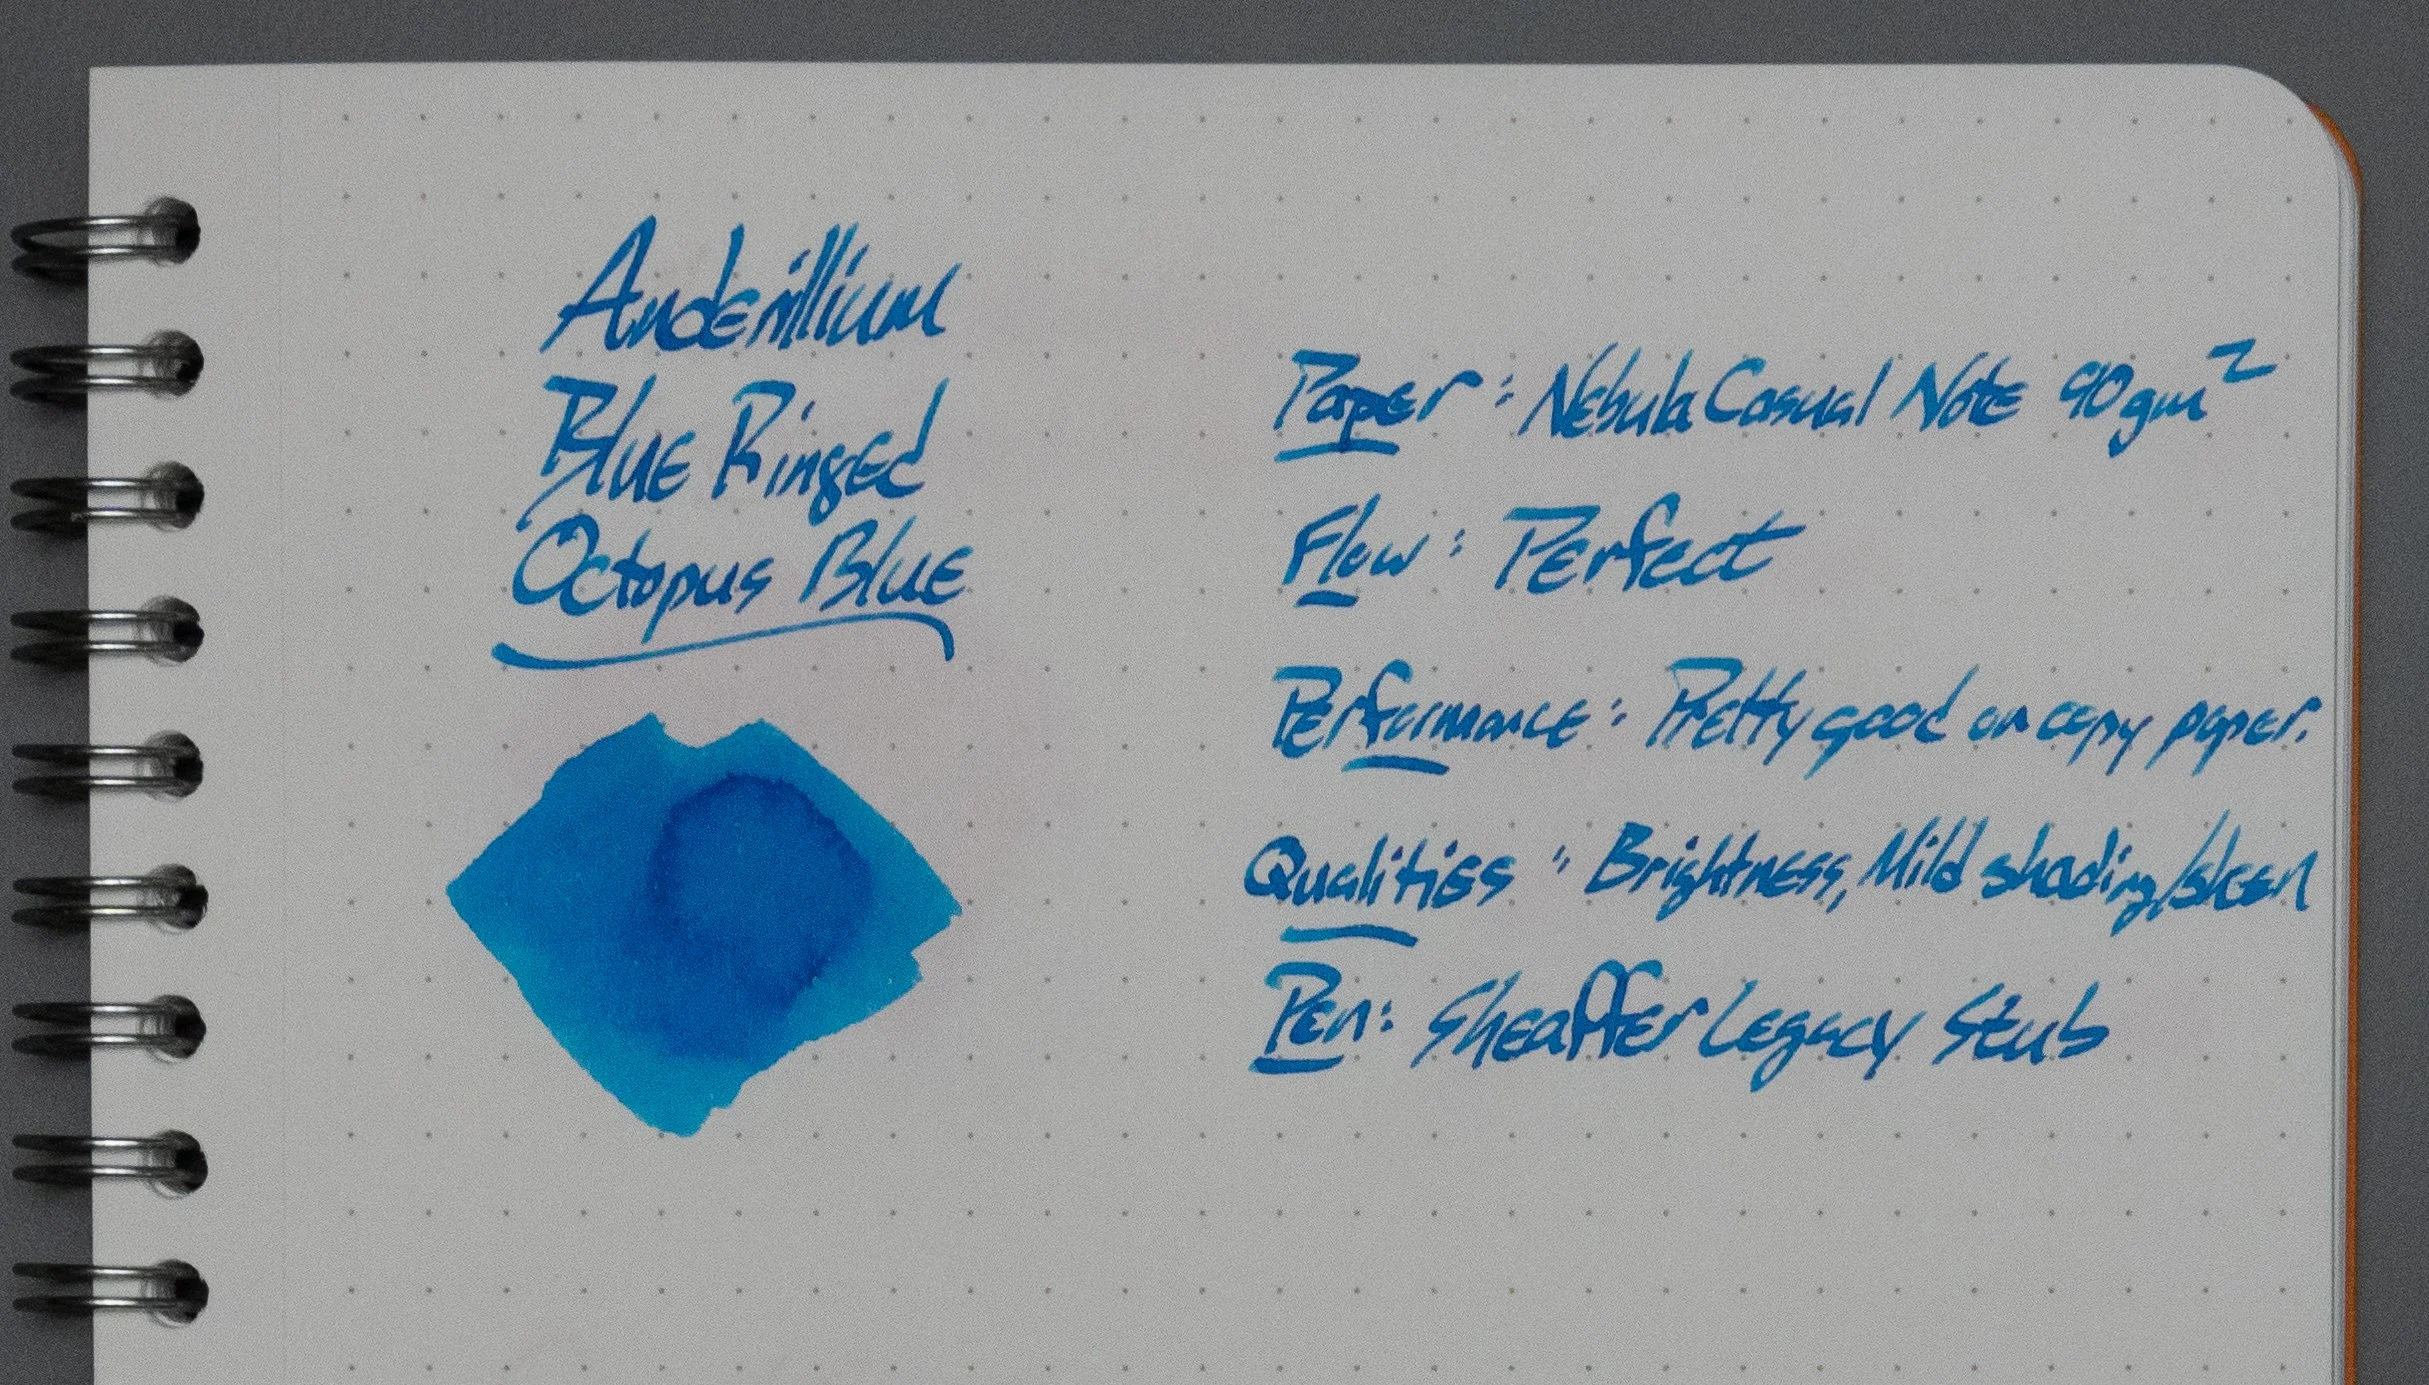 Anderillium
Blue Ringed
Octopus Blue
Paper: Nebula Casual Note 90gm²
Flow: Perfect
Performance: Pretty good on copy paper.
Qualities: Brightness, Mild shading/sheen
Pen: Sheaffer Legacy Stub